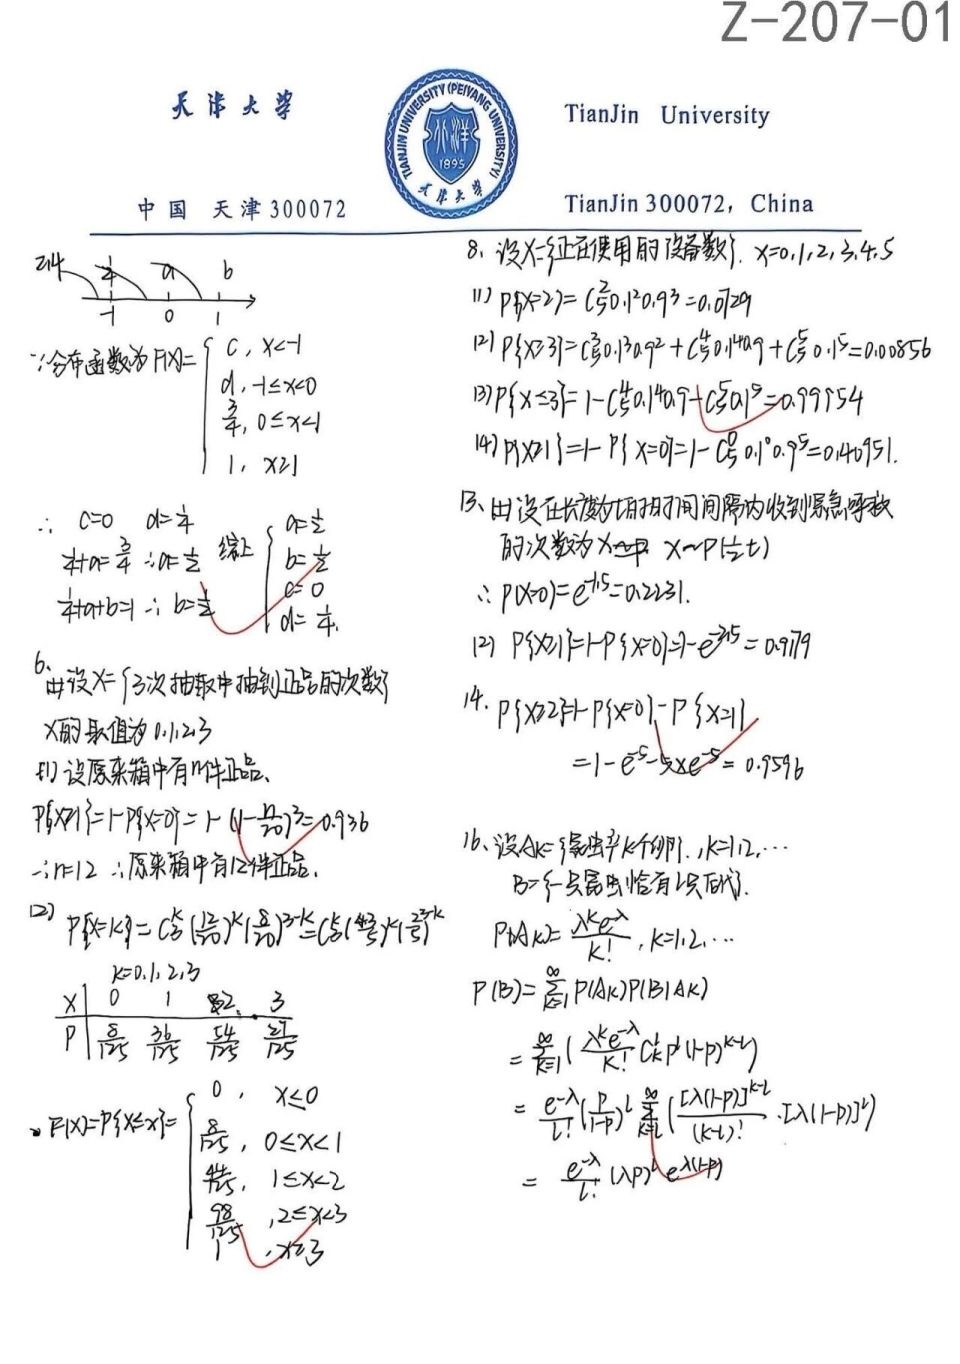 Z-207-01
天津大学
中国 天津 300072
TIANJIN UNIVERSITY (PEIYANG UNIVERSITY)
北洋
1895
天津大学
TianJin University
TianJin 300072, China
2.14
1/4 a b
-1 0 1
∵分布函数为 F(x)= { c, x<-1
d, -1≤x<0
3/4, 0≤x<1
1, x≥1
∴ c=0 d=1/4
1/4+a=3/4 ∴a=1/2
1/4+a+b=1 ∴ b=1/4
综上 { a=1/2
b=1/2
c=0
d=1/4.
6、
(1) 设X={3次抽取中抽到正品的次数}
X的取值为 0,1,2,3
(1) 设原来箱中有n件正品、
P{X≥1}=1-P{X=0}=1-(1-n/20)³=0.936
∴n=12 ∴原来箱中有12件正品.
(2) P{X=K}=C₃ᴷ(12/20)ᴷ(8/20)³⁻ᴷ=C₃ᴷ(3/5)ᴷ(2/5)³⁻ᴷ
K=0,1,2,3
X 0 1 2 3
P 8/125 36/125 54/125 27/125
F(x)=P{X≤x}= { 0, x≤0
8/125, 0≤x<1
44/125, 1≤x<2
98/125, 2≤x<3
1, x≥3
8、设X={正在使用的设备数}. X=0,1,2,3,4,5
(1) P{X=2}=C₅²0.1²0.9³=0.0729
(2) P{X≥3}=C₅³0.1³0.9²+C₅⁴0.1⁴0.9+C₅⁵0.1⁵=0.00856
(3) P{X≤3}=1-C₅⁴0.1⁴0.9-C₅⁵0.1⁵=0.99954
(4) P{X≥1}=1-P{X=0}=1-C₅⁰0.1⁰0.9⁵=0.40951.
13、(1) 设在长度为t的时间间隔内收到紧急呼救
的次数为X X~P(1/2 t)
∴ P(X=0)=e^-1.5=0.2231.
(2) P{X≥1}=1-P{X=0}=1-e^-2.5=0.9179
14. P{X≥2}=1-P{X=0}-P{X=1}
=1-e⁻⁵-5×e⁻⁵=0.9596
16、设Aₖ={昆虫产K个卵}, K=1,2,…
B={一只昆虫恰有L只后代}.
P(Aₖ)=λᴷe^-λ/K!, K=1,2,…
P(B)=Σ_{K=1}^∞ P(Aₖ)P(B|Aₖ)
=Σ_{K=1}^∞ (λᴷe^-λ/K! Cₖᴸ Pᴸ(1-P)^(K-L))
=e^-λ/L! (P/(1-P))ᴸ Σ_{K=L}^∞ ([λ(1-P)]^(K-L)/(K-L)! ·[λ(1-P)]ᴸ)
=e^-λ/L! (λP)ᴸ e^λ(1-P)